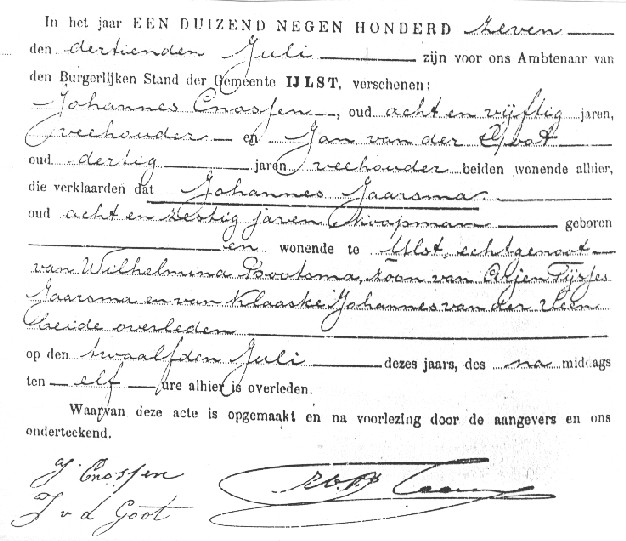 In het jaar EEN DUIZEND NEGEN HONDERD zeven
den dertienden Juli zijn voor ons Ambtenaar van
den Burgerlijken Stand der Gemeente IJLST, verschenen:
Johannes Cnossen, oud acht en vijftig jaren,
veehouder en Jan van der Goot
oud dertig jaren veehouder beiden wonende alhier,
die verklaarden dat Johannes Jaarsma
oud acht en zestig jaren koopman geboren
en wonende te IJlst, echtgenoot
van Wilhelmina Bootsma, zoon van Atjen Tijsjes
Jaarsma en van Klaaske Johannes van der Veen
beide overleden
op den twaalfden Juli dezes jaars, des na middags
ten elf ure alhier is overleden.
Waarvan deze acte is opgemaakt en na voorlezing door de aangevers en ons
onderteekend.
J Cnossen
J v d Goot